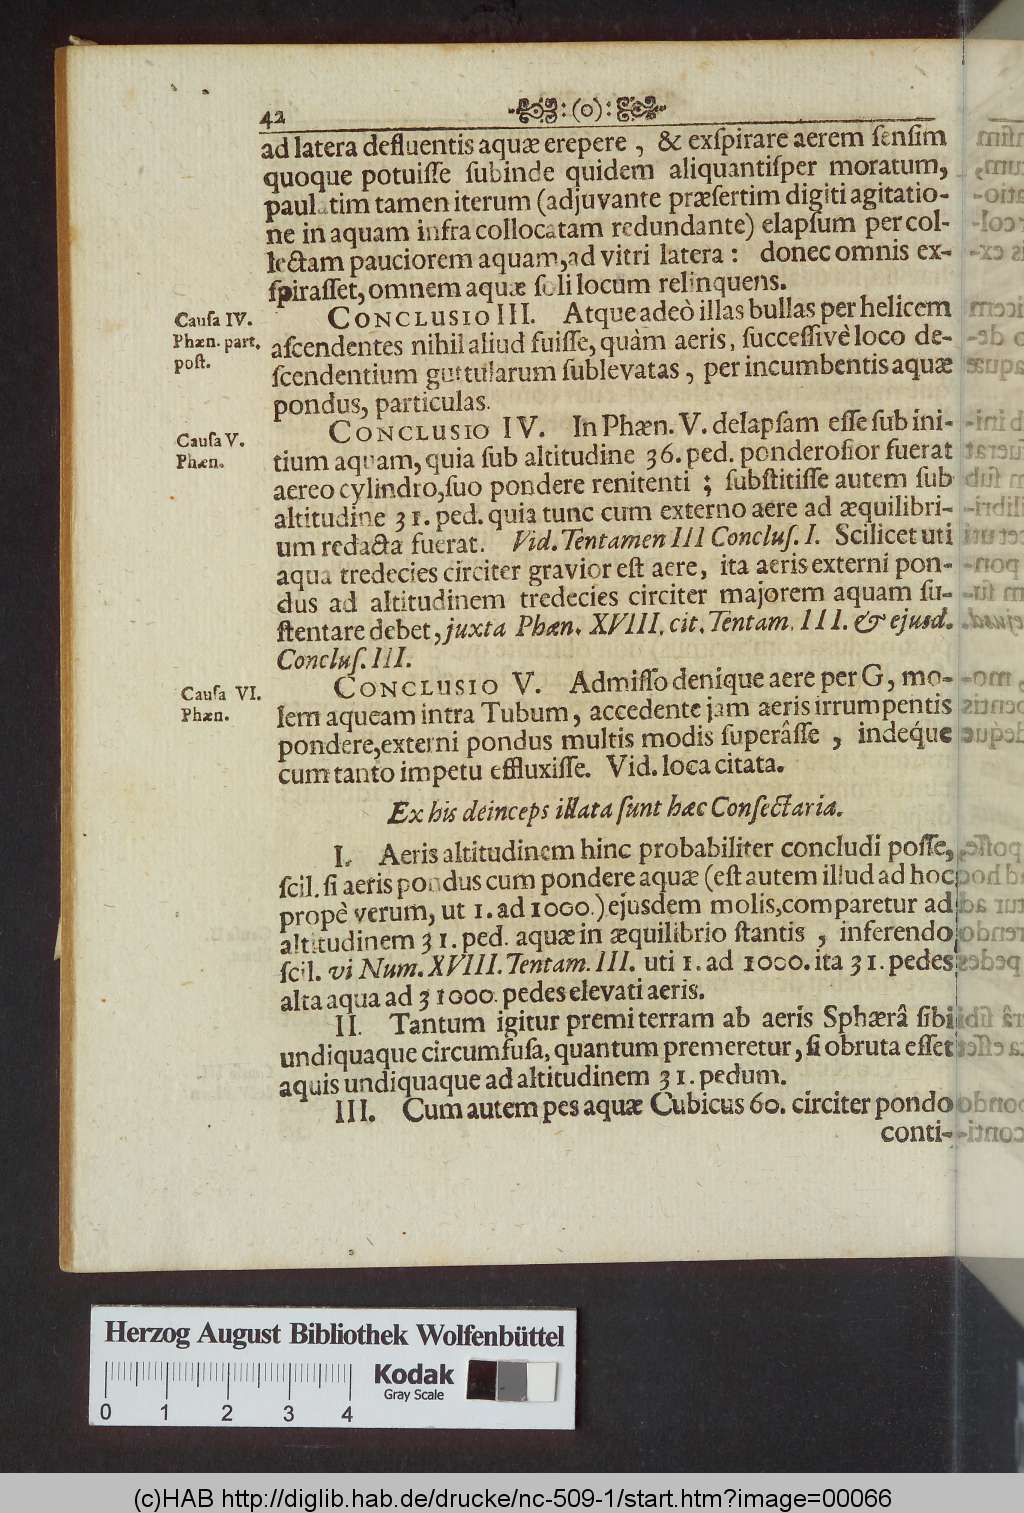 42 :(o):
ad latera defluentis aquæ erepere , & exſpirare aerem ſenſim
quoque potuiſſe ſubinde quidem aliquantiſper moratum,
paulatim tamen iterum (adjuvante præſertim digiti agitatio-
ne in aquam infra collocatam redundante) elapſum per col-
lectam pauciorem aquam, ad vitri latera : donec omnis ex-
ſpiraſſet, omnem aquæ ſoli locum relinquens.
Cauſa IV.
Phæn. part.
poſt.
CONCLUSIO III. Atque adeò illas bullas per helicem
aſcendentes nihil aliud fuiſſe, quàm aeris, ſucceſſivè loco de-
ſcendentium guttularum ſublevatas , per incumbentis aquæ
pondus, particulas.
Cauſa V.
Phæn.
CONCLUSIO IV. In Phæn. V. delapſam eſſe ſub ini-
tium aquam, quia ſub altitudine 36. ped. ponderoſior fuerat
aereo cylindro, ſuo pondere renitenti ; ſubſtitiſſe autem ſub
altitudine 31. ped. quia tunc cum externo aere ad æquilibri-
um redacta fuerat. Vid. Tentamen III Concluſ. I. Scilicet uti
aqua tredecies circiter gravior eſt aere, ita aeris externi pon-
dus ad altitudinem tredecies circiter majorem aquam ſu-
ſtentare debet, juxta Phæn. XVIII. cit. Tentam. III. & ejusd.
Concluſ. III.
Cauſa VI.
Phæn.
CONCLUSIO V. Admiſſo denique aere per G, mo-
lem aqueam intra Tubum , accedente jam aeris irrumpentis
pondere, externi pondus multis modis ſuperâſſe , indeq́ue
cum tanto impetu effluxiſſe. Vid. loca citata.
Ex his deinceps illata ſunt hæc Conſectaria.
I. Aeris altitudinem hinc probabiliter concludi poſſe,
ſcil. ſi aeris pondus cum pondere aquæ (eſt autem illud ad hoc
propè verum, ut 1. ad 1000.) ejusdem molis, comparetur ad
altitudinem 31. ped. aquæ in æquilibrio ſtantis , inferendo
ſcil. vi Num. XVIII. Tentam. III. uti 1. ad 1000. ita 31. pedes
alta aqua ad 31000. pedes elevati aeris.
II. Tantum igitur premi terram ab aeris Sphærâ ſibi
undiquaque circumfuſa, quantum premeretur, ſi obruta eſſet
aquis undiquaque ad altitudinem 31. pedum.
III. Cum autem pes aquæ Cubicus 60. circiter pondo
conti-
Herzog August Bibliothek Wolfenbüttel
Kodak
Gray Scale
0 1 2 3 4
(c)HAB http://diglib.hab.de/drucke/nc-509-1/start.htm?image=00066